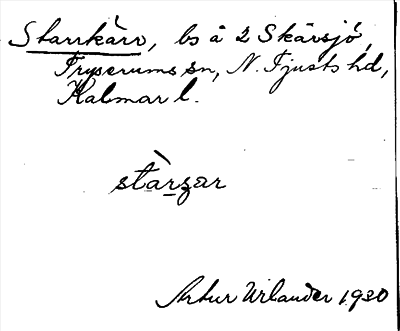 Starrkärr, bs å 2 Skärsjö,
Tryserums sn, N. Tjusts hd,
Kalmar l.
stàrʒar
Artur Urlander 1930